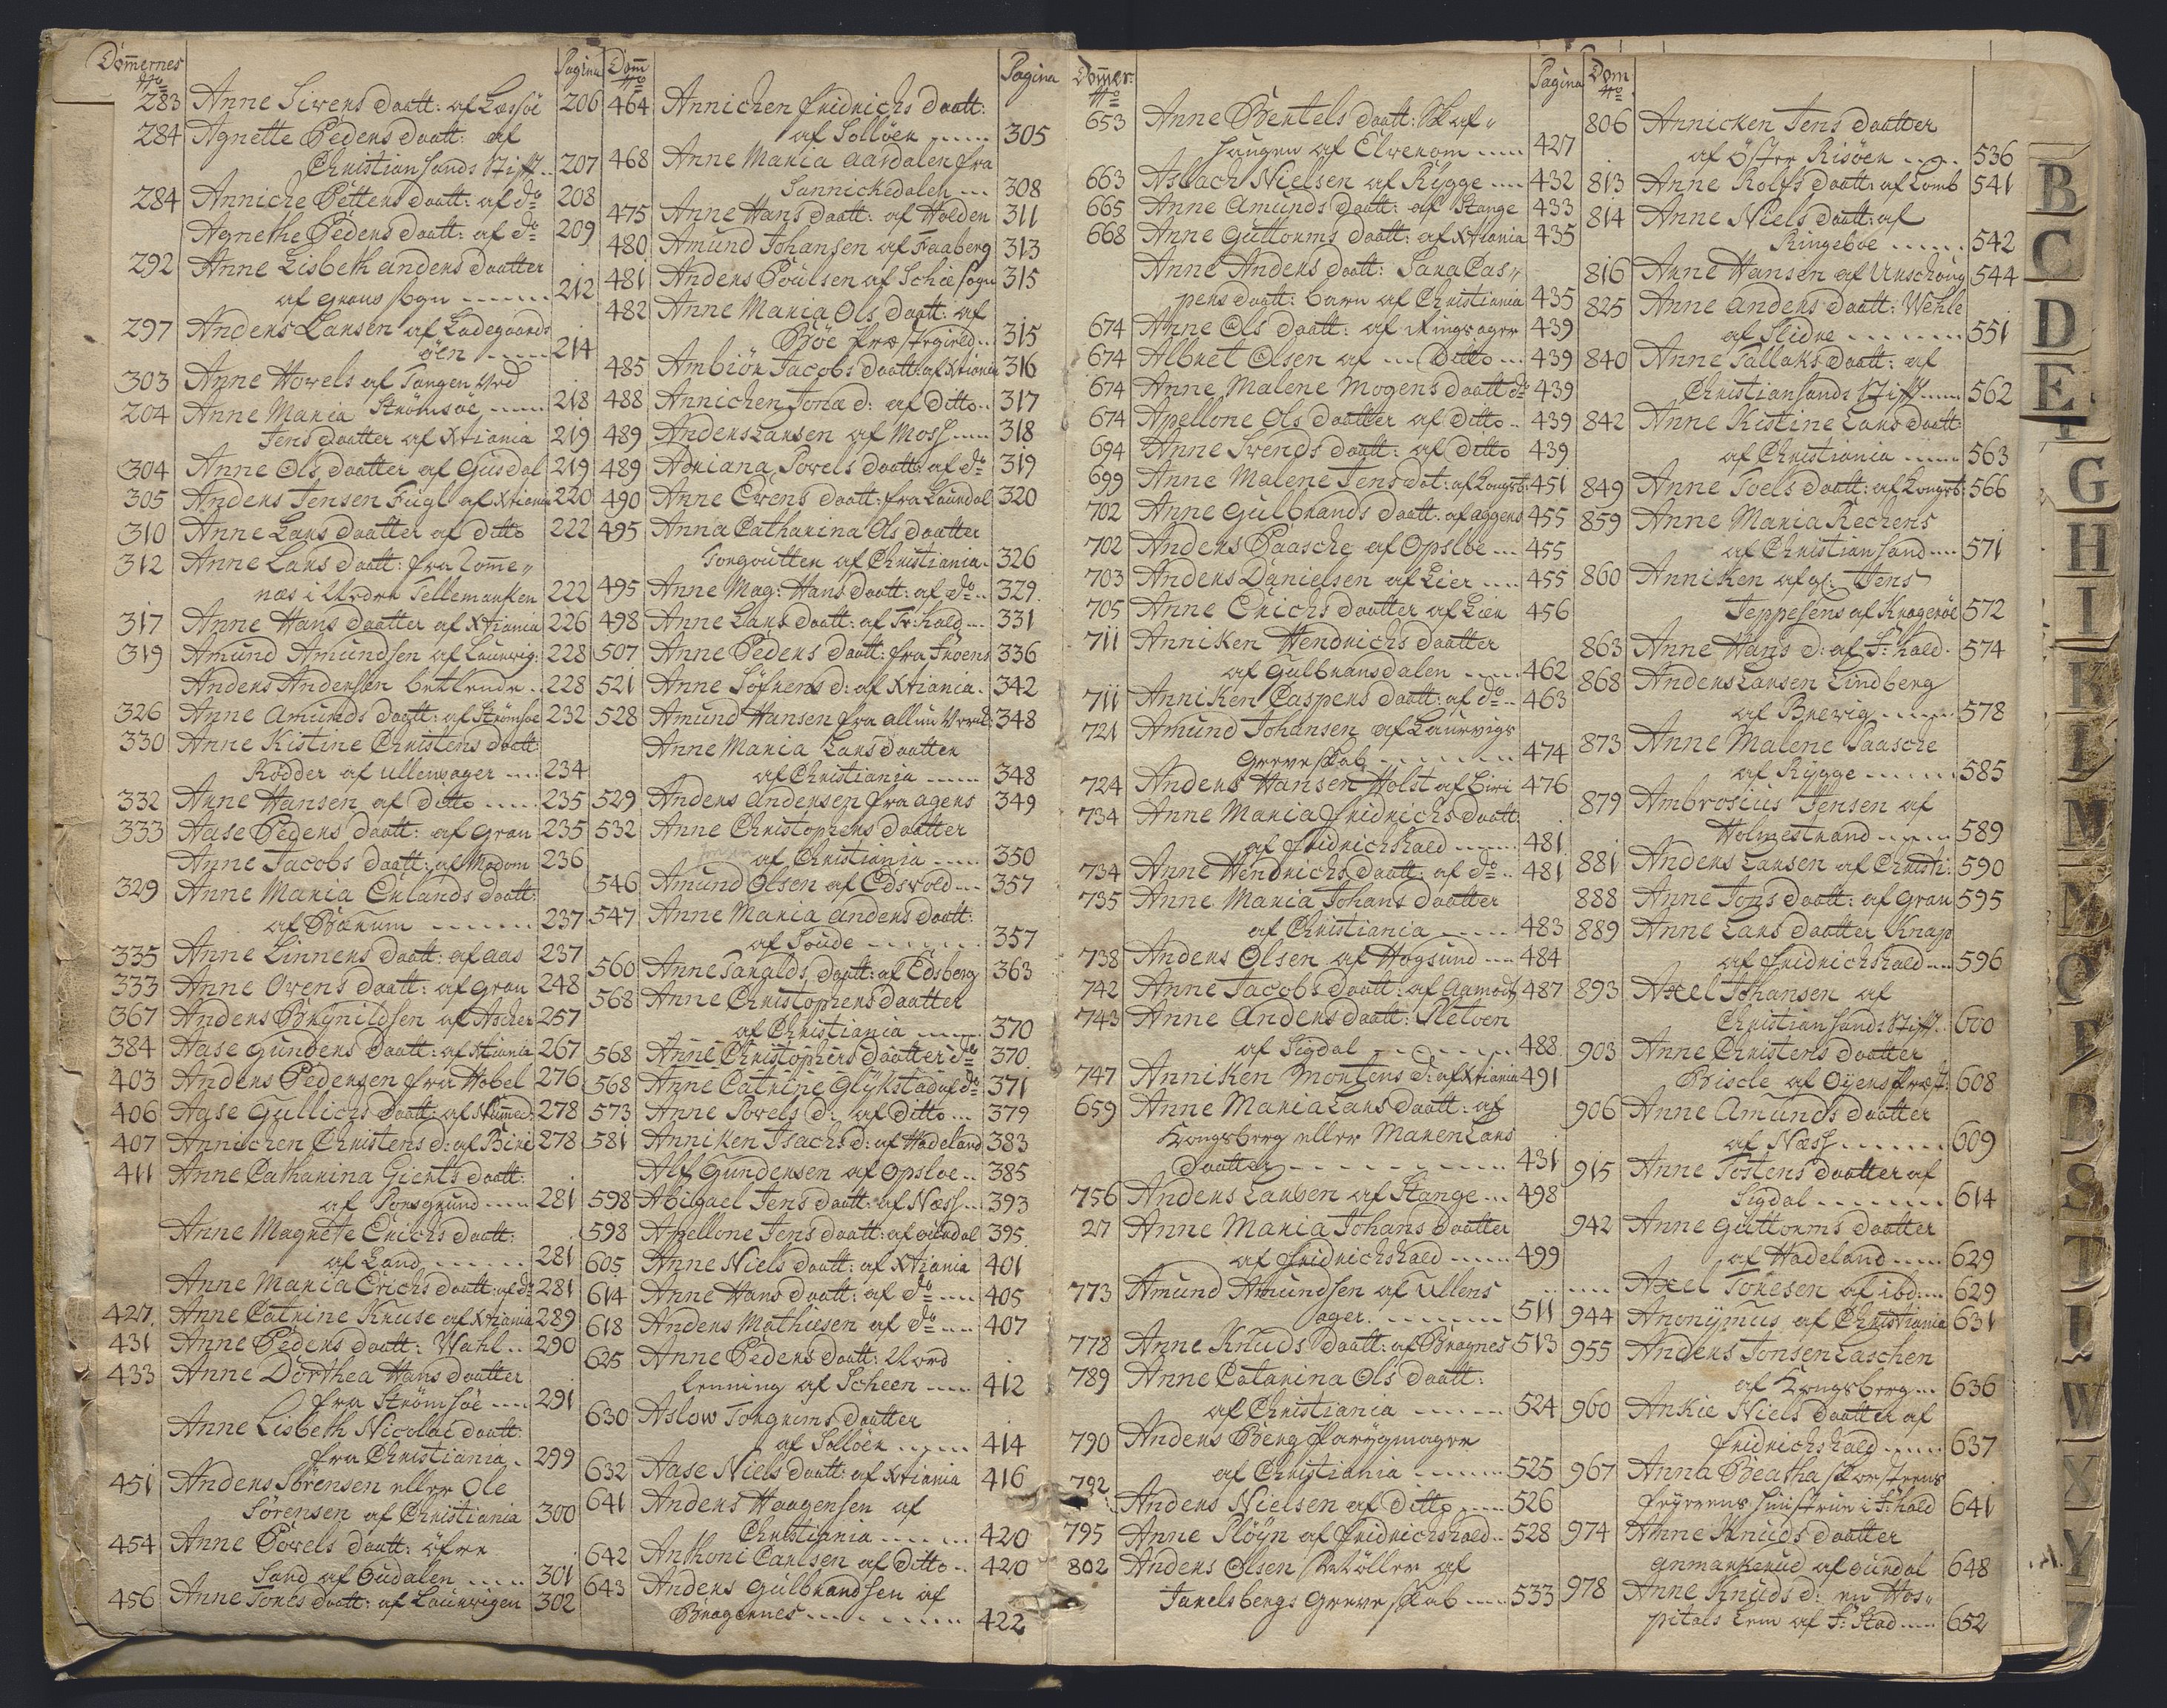 Dom̄ernes
No Pagina
283 Anne Sivers Daatt: af Lessöe 206
284 Agnette Peders Daatt: af
Christiansands Stifft.. 207
284 Anniche Petters Daatt: af do 208
Agnethe Peders Daatt: af do 209
292 Anne Lisbeth Anders Daatter
af Grans Sogn ------ 212
297 Anders Larsen af Ladegaards
öen ----- 214
303 Anne Howels af Tangen Ved
Strömsöe ----- 218
204 Anne Maria
Jens Daatter af Xtiania 219
304 Anne Ols Daatter af Gusdal 219
305 Anders Jensen Fugl af Xtiania 220
310 Anne Lars Daatter af Ditto 222
312 Anne Lars Daatt: fra Tom̄e„
næs i Nedre Tellemarken 222
317 Anne Hans Daatter af Xtiania 226
319 Amund Amundsen af Laurvig: 228
Anders Andersøn betlende.. 228
326 Anne Amunds Daatt: af Strömsöe 232
330 Anne Kistine Christens Daatt:
Rödder af Ullensager ---- 234
332 Anne Hansen af Ditto ----- 235
333 Aase Peders Daatt: af Gran 235
Anne Jacobs Daatt: af Modom 236
329 Anne Maria Erlands Daatt:
af Bærum ------- 237
335 Anne Linners Daatt: af Aas 237
333 Anne Overs Daatt: af Gran 248
367 Anders Brynildsen af Ascher 257
384 Aase Gunders Daatt: af Xtiania 267
403 Anders Pedersen fra Hobel 276
406 Aase Gullichs Daatt: af Numed: 278
407 Annichen Christens D: af Biri 278
411 Anne Catharina Gierts Daatt:
af Porsgrund ---- 281
Anne Magrete Erichs Daatt:
af Land ------ 281
Anne Maria Erichs Daatt: af do 281
427. Anne Catrine Kruse af Xtiania 289
431 Anne Peders Daatt: Wahl.. 290
433 Anne Dorthea Hans Daatter
fra Strömsöe ---- 291
Anne Lisbeth Nicolai Daatt:
fra Christiania. 299
451 Anders Sörensen eller Ole
Sörensen af Christiania 300
454 Anne Powels Daatt: öfre
Sand af Oudalen ..... 301
456 Anne Tores Daatt: af Laurvigen 302
Dom̄
No Pagina
464 Annichen Fridrichs Daatt:
af Solloer ------ 305
468 Anne Maria Aardalen fra
Sannickedalen --- 308
475 Anne Hans Daatt: af Holden 311
480 Amund Johansen af Faaberg 313
481 Anders Poulsen af Schie Sogn 315
482 Anne Maria Ols Daatt: af
Böe Præstegield... 315
485 Ambiör Jacobs Daatt: af Xtiania 316
488 Annichen Jonæ D: af Ditto.. 317
489 Anders Larsen af Moss ----- 318
489 Adriana Powels Daatt: af do 319
490 Anne Evers Daatt: fra Laurdal 320
495 Anna Catharina Ols Daatter
Torgoutten af Christiania. 326
495 Anne Mag: Hans Daatt: af do.. 329.
498 Anne Lars Daatt: af Fr: hald --- 331
507 Anne Peders Daatt: fra Froens 336
521 Anne Söfrens D: af Xtiania. 342
528 Amund Hansen fra Allun Verck: 348
Anne Maria Lars Daatter
af Christiania ------ 348
529 Anders Andersen fra Agers 349
532 Anne Christophers Daatter
af Christiania ----- 350
546 Amund Olsen af Edsvold --- 357
547 Anne Maria Anders Daatt:
af Soude ------- 357
560 Anne Haralds Daatt: af Edsberg 363
568 Anne Christophers Daatter
af Christiania ------ 370
568 Anne Christophers Daatter do 370
568 Anne Catrine Glykstad af do 371
573 Anne Powels D: af Ditto --- 379
581 Anniken Isachs D: af Hadeland 383
Alf Gundersen af Opsloe.. 385
598 Abigael Jens Daatt: af Næss --- 393
598 Apellone Jens Daatt: af Oúrdal 395
605 Anne Niels Daatt: af Xtiania 401
614 Anne Hans Daatt: af do ---- 405
618 Anders Mathiesen af do ---- 407
625 Anne Peders Daatt: Nord
lenning af Scheen ---- 412
630 Aslow Torgrims Daatter
af Solloer ------ 414
632 Aase Niels Daatt: af Xtiania 416
641 Anders Haagensen af
Christiania ------ 420
642 Anthoni Carlsen af Ditto.. 420
643 Anders Gulbrandsen af
Bragernes ---------- 422
Dom̄er:
No Pagina
653 Anne Bertels Daatt: Skaf„
haugen af Elverom ---- 427
663 Aslach Nielsen af Rygge ---- 432
665 Anne Amunds Daatt: af Stange 433
668 Anne Guttorms Daatt: af Xtiania 435
Anne Anders Daatt: Sara Cas„
pers Daatt: barn af Christiania 435
674 Anne Ols Daatt: af Ringsager 439
674 Albret Olsen af --- Ditto --- 439
674 Anne Malene Mogens Daatt do 439
674 Apellone Ols Daatter af Ditto.. 439
694 Anne Svends Daatt: af Ditto 439
699 Anne Malene Jens Dat: af Kongsb: 451
702 Anne Gulbrands Daatt: af Aggers 455
702 Anders Paasche af Opsloe --- 455
703 Anders Danielsen af Lier ---- 455
705 Anne Erichs Daatter af Lier 456
711 Anniken Hendrichs Daatter
af Gulbransdalen ---- 462
711 Anniken Caspers Daatt: af do -- 463
721 Amund Johansen af Laurvigs
Greveskab -------- 474
724 Anders Hansen Holst af Biri 476
734 Anne Maria Fridrichs Daatt:
af Fridrichshald ------ 481.
734 Anne Hendrichs Daatt: af do.. 481
735 Anne Maria Johans Daatter
af Christiania ----- 483
738 Anders Olsen af Hogsund --- 484
742 Anne Jacobs Daatt: af Aamodt 487
743 Anne Anders Daatt: Sletven
af Sigdal --------- 488
747 Anniken Mortens D: af Xtiania 491
659 Anne Maria Lars Daatt: af
Kongsberg eller Maren Lars
Daatter ----------- 431
756 Anders Larsen af Stange --- 498
27 Anne Maria Johans Daatter
af Fridrichshald ------ 499
773 Amund Amundsen af Ullens
ager. -------- 511
778 Anne Knuds Daatt: af Bragnes 513
789 Anne Catarina Ols Daatt:
af Christiania ------ 524
790 Anders Berg Parygmager
af Christiania ------- 525
792 Anders Nielsen af Ditto ----- 526
795 Anne Slöyn af Fridrichshald.. 528
802 Anders Olsen Möller af
Jarelsbergs Greveskab ---- 533
Dom
No
806 Annicken Jens Daatter
af Öster Risöer ----- 536
813 Anne Rolfs Daatt: af Lomb 541
814 Anne Niels Daatt: af
Ringeboe ------ 542
816 Anne Hansen af Unschoug 544
825 Anne Anders Daatt: Wehle
af Slidre ------- 551
840 Anne Tallaks Daatt: af
Christiansands Stifft ---- 562
842 Anne Kistine Lars Daatt:
af Christiania ----- 563
849 Anne Joels Daatt: af Kongsb: 566
859 Anne Maria Recherts
af Christiansand ---- 571
860 Anniken af gl: Jens
Jeppesens af Kragerøe 572
863 Anne Hans D: af F: hald. 574
868 Anders Larsen Lindberg
af Brevig ------ 578
873 Anne Malene Paasche
af Rygge ------ 585
879 Ambrosius Jensen af
Holmestrand ----- 589
881 Anders Larsen af Christi: 590
888 Anne Jons Daatt: af Gran 595
889 Anne Lars Daatter Knap
af Fridrichshald --- 596
893 Axel Johansen af
Christiansands Stifft.. 600
903 Anne Christens Daatter
af Öyers Præst: 608
906 Anne Amunds Daatter
af Næss ------ 609
915 Anne Tostens Daatter af
Sigdal ------- 614
942 Anne Guttorms Daatter
af Hadeland ---- 629
Axel Toresen af ibd: --- 629
944 Anonymus af Christiania 631
955 Anders Jonsen Laschen
af Kongsberg --- 636
960 Ankie Niels Daatter af
Fridrichshald ----- 637
967 Anna Beatha Skorsteens
feyerens Huustrue i F: hald 641
974 Anne Knuds Daatter
af Ourdal 648
978 Anne Knuds D: en Hos„
pitals Lem af F: Stad ---- 652
B
C
D
E
G
H
I
K
L
M
N
O
P
R
S
T
U
W
X
Y
Z